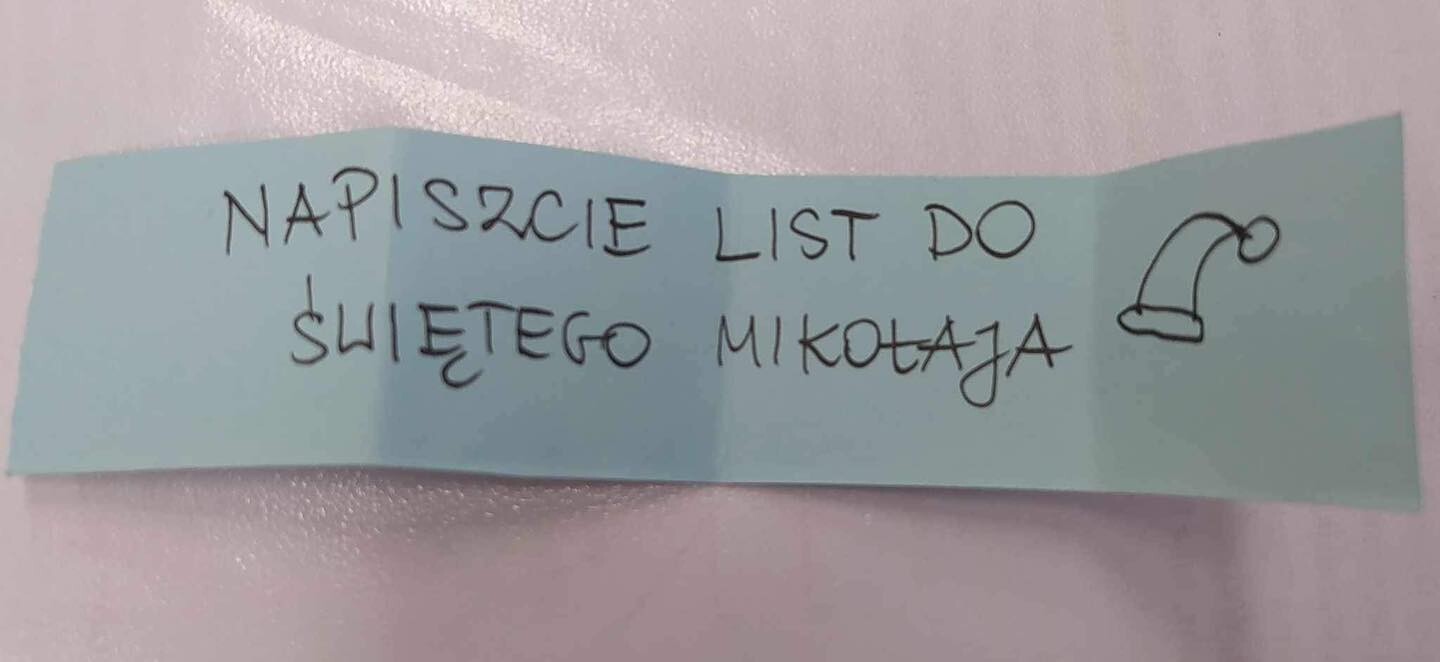 NAPISZCIE LIST DO
ŚWIĘTEGO MIKOŁAJA